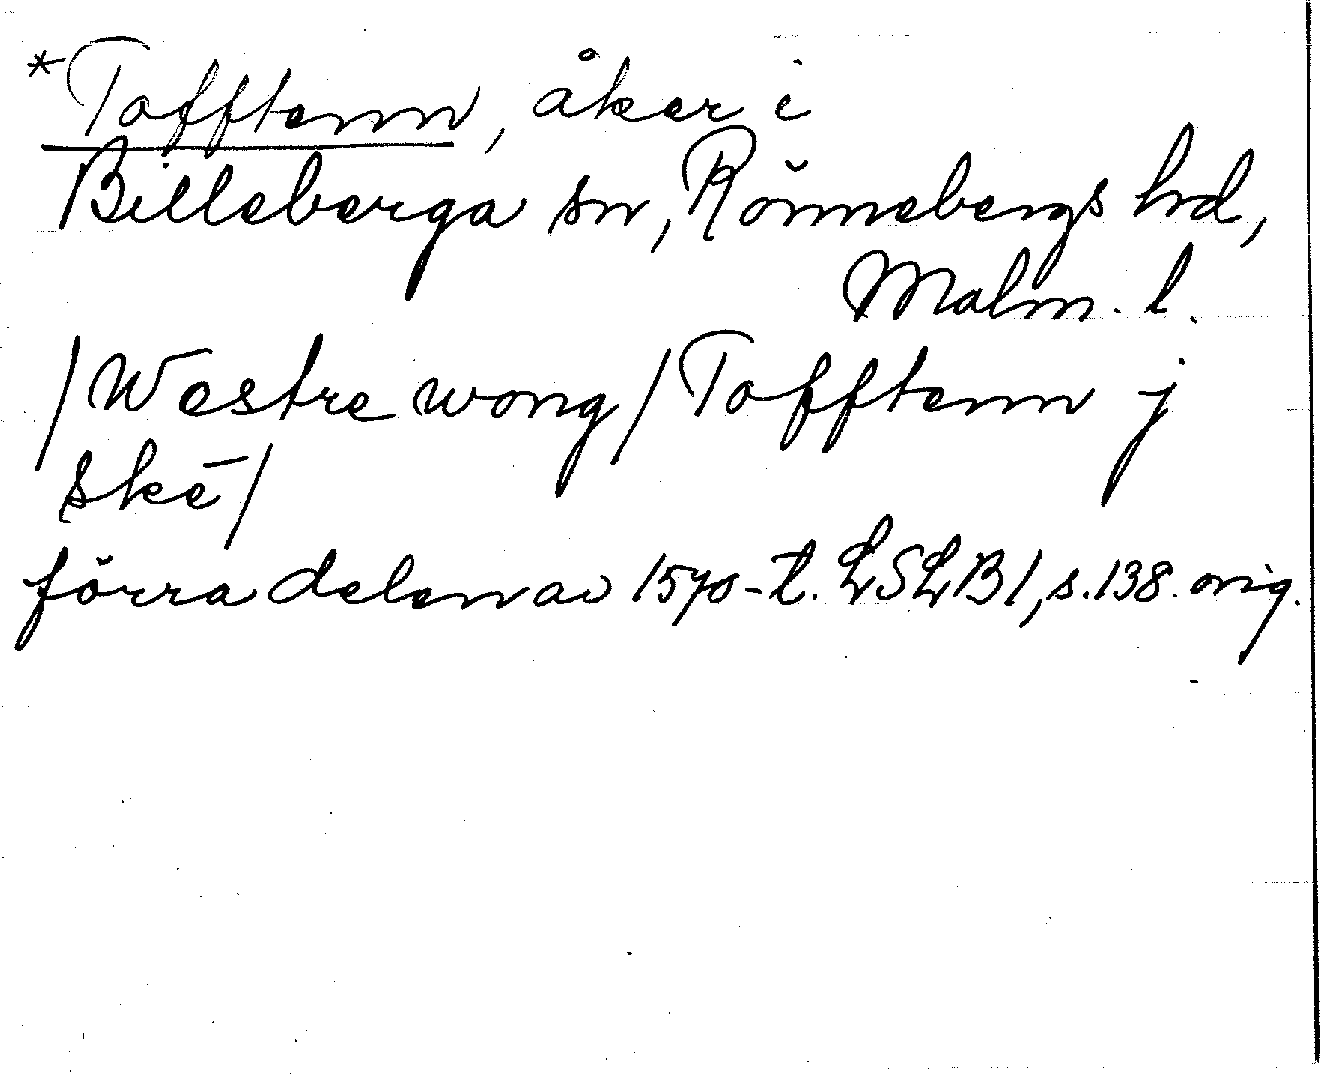 *Tofftenn, åker i
Billeberga sn, Rönnebergs hd,
Malm. l.
/Westre wong/ Tofftenn j
skē/
förra delen av 1570-t. LSLB1, s.138. orig.